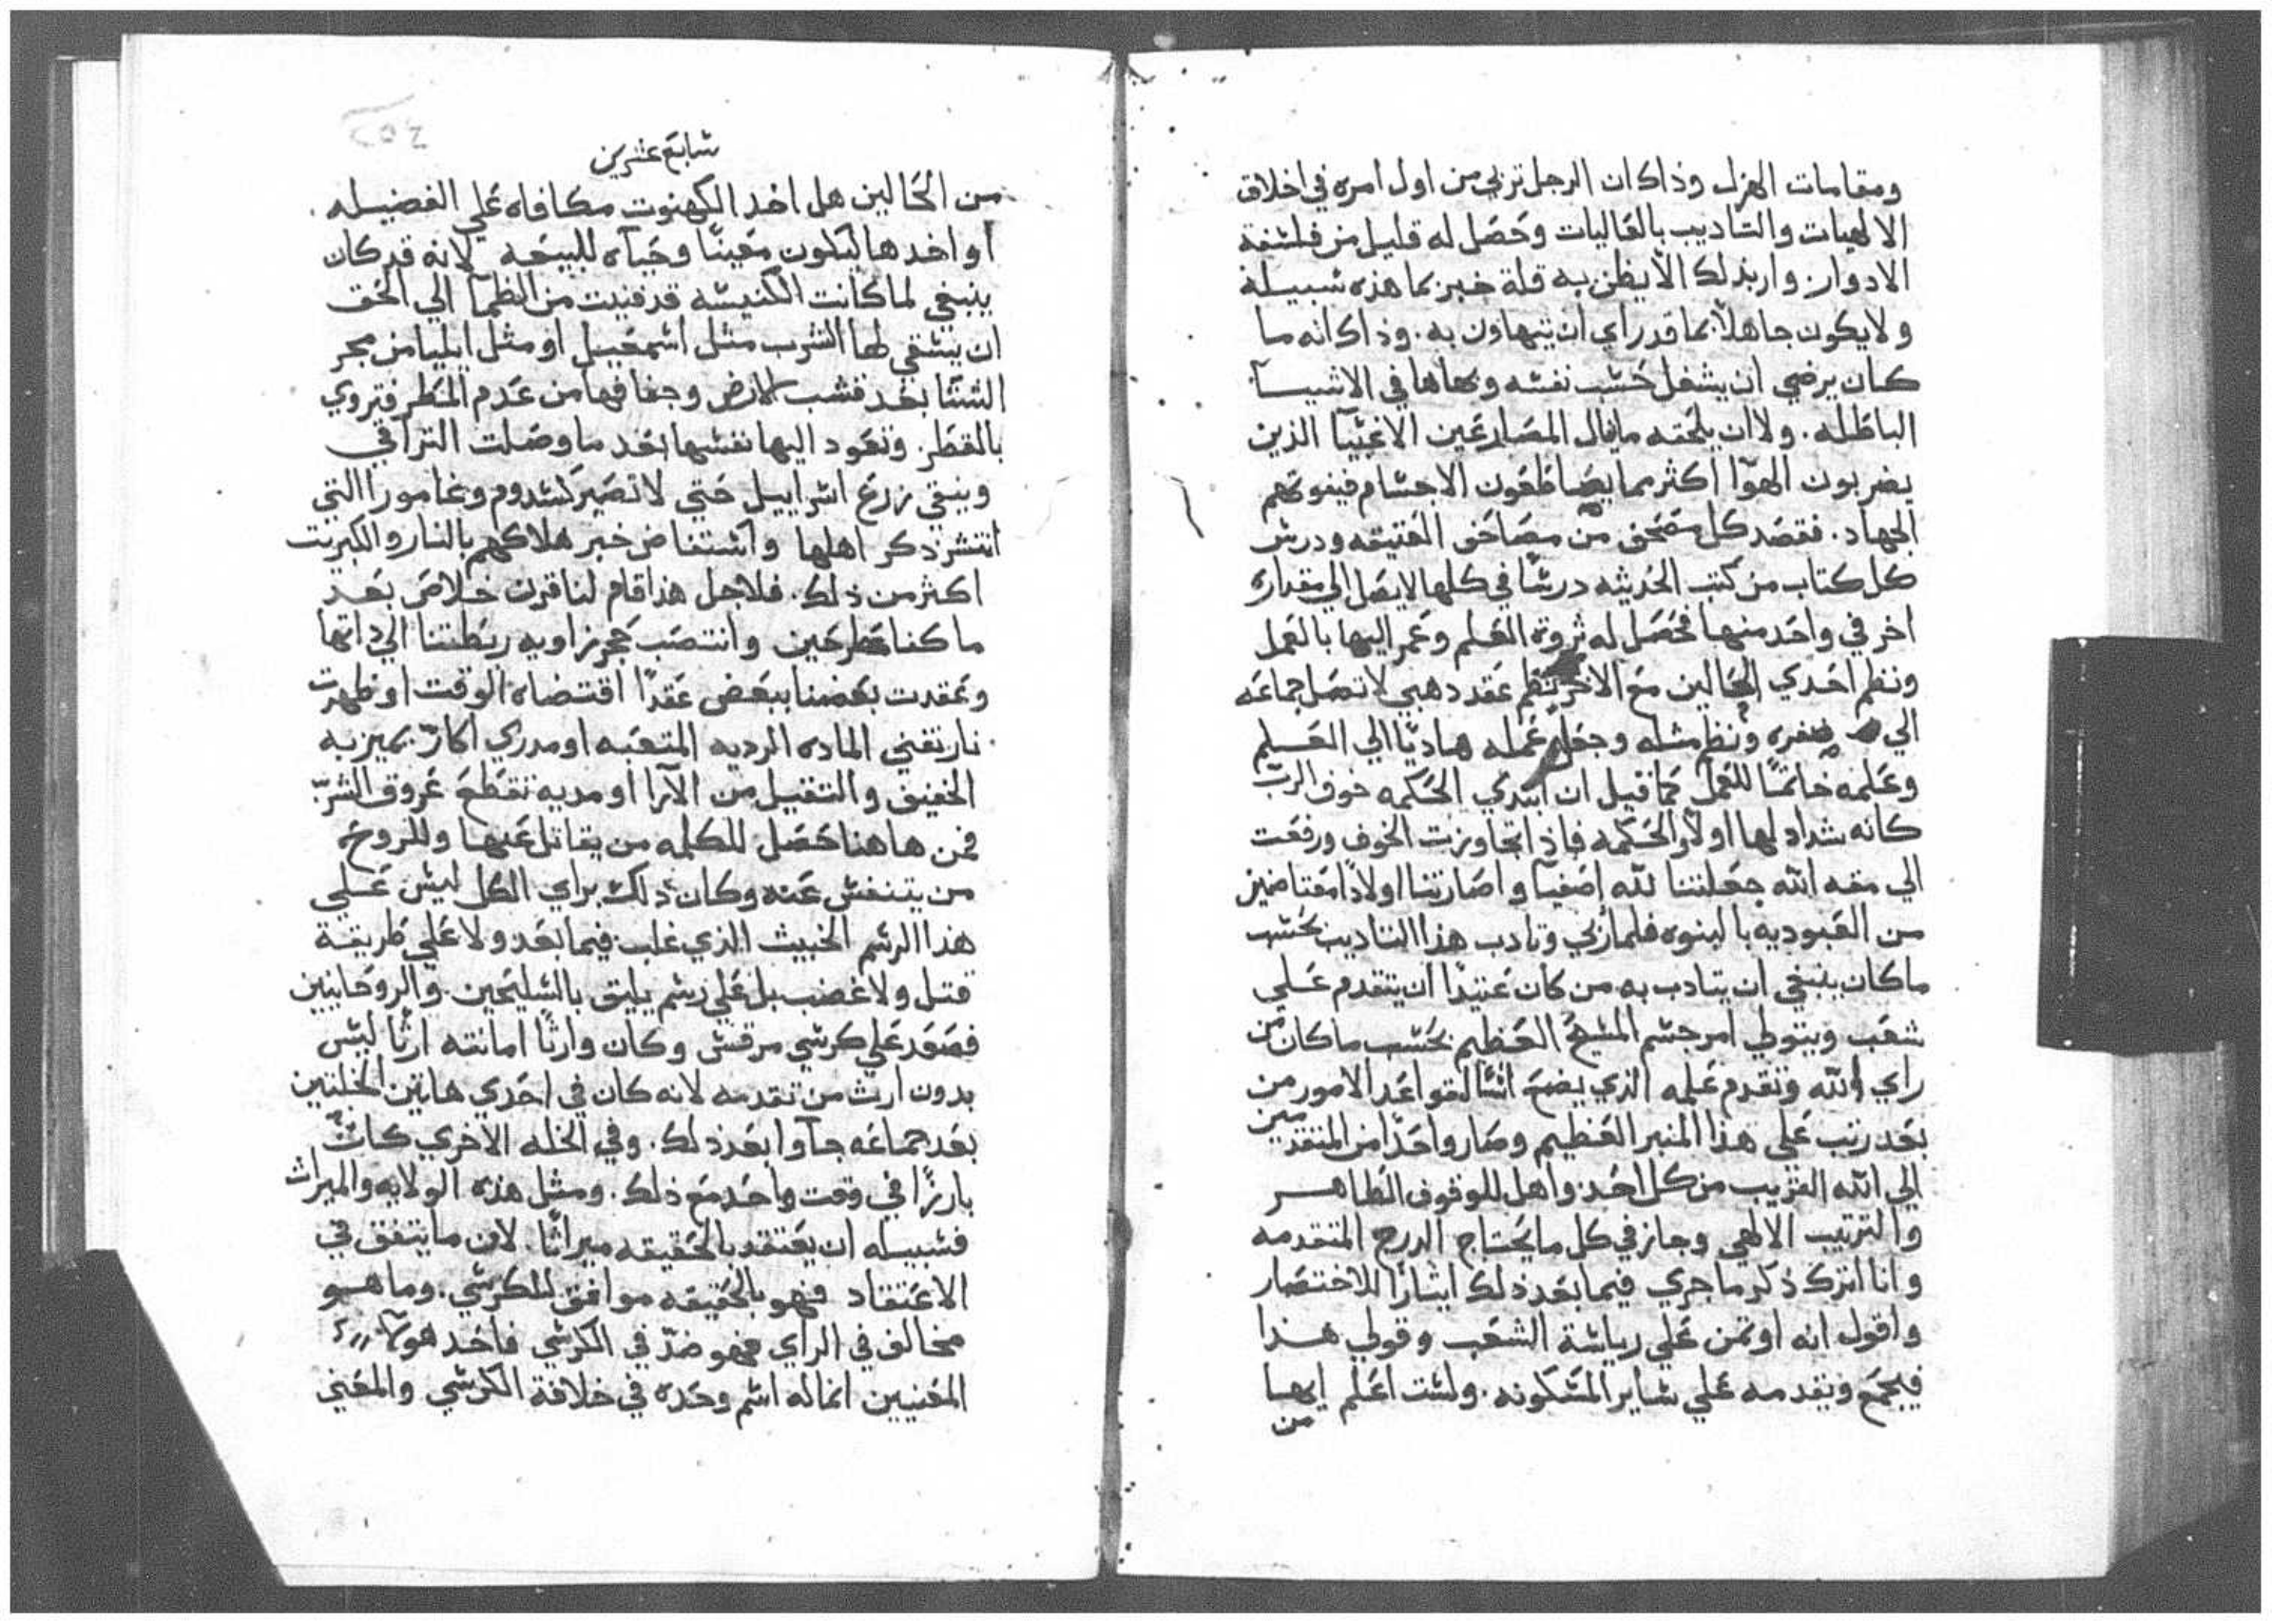 ومقامات الهزل وذاك ان الرجل تربي من اول امره في اخلاق
الالهيات والتاديب بالغاليات وحصل له قليل من فلسفة
الادوار واربذلك الا يظن به قلة خبر بما هذه سبيله
ولا يكون جاهلاً بما قد راي ان يتهاون به. وذاك انه ما
كان يرضي ان يشغل حسب نفسه وبهاها في الاشيآ
الباطله. ولا ان يلحقه ما ينال المصارعين الاغبيآ الذين
يضربون الهوآ اكثر مما يصاطعون الاجسام فيفوتهم
الجهاد. فقصد كل مصحف من مصاحف العتيقه ودرس
كل كتاب من كتب الحديثه درسًا في كلها لا يصل الي مقداره
اخر في واحد منها فحصل له ثروة العلم وعمر اليها بالعمل
ونظم احدي الحالين مع الاخر نظم عقد دهبي لا تصل جماعه
الي ضفره ونظم مثله وجعل عمله هاديًا الي العلم
وعلمه خاتمًا للعمل كما قيل ان ابتدي الحكمه خوف الرب
كانه شداد لها اولاً والحكمه فاذا تجاوزت الخوف ورفعت
الي مقه الله جعلتنا لله اصفيآ واصارتنا اولادًا معتاضين
من العبوديه بالبنوه فلما ربي وتادب هذا التاديب بحسب
ما كان ينبغي ان يتادب به من كان عتيدًا ان يتقدم علي
شعب ويتولي امر جسم المسيح العظيم بحسب ما كان من
راي الله وتقدم علمه الذي يضع اسًا لقواعد الامور من
بعد رتب علي هذا المنبر العظيم وصار واحدًا من المتقدمين
الي الله القريب من كل احد واهل للوقوف الطاهر
والترتيب الالهي وجاز في كل ما يحتاج الدرج المتقدمه
وانا اترك ذكر ما جري فيما بعد ذلك ايثارًا للاختصار
واقول انه اوتمن علي رياسة الشعب وقولي هذا
فيجمع ويقدمه علي ساير المسكونه. ولست اعلم ايهما
من
سابع عشرين
من الحالين هل اخد الكهنوت مكافاه علي الفضيله.
او اخدها ليكون معينًا وحياه للبيعه لانه قد كان
ينبغي لما كانت الكنيسه قد فنيت من الظمآ الي الحق
ان يستقي لها الشرب مثل اسمعيل او مثل ايليا من مجر
الشتا بعد قشب الارض وجفافها من عدم المطر فتروي
بالقطر. وتعود اليها نفسها بعد ما وصلت التراقي
ويبقي زرع اسراييل حتي لا تصير كسدوم وغامورا التي
انتشر ذكر اهلها واستفاض خبر هلاكهم بالنار والكبريت
اكثر من ذلك. فلاجل هذا قام لنا قرن خلاص بعد
ما كنا مطرحين وانتصب حجر زاويه ربطتنا الي داتها
وعقدت بعضنا ببعض عقدًا اقتضاه الوقت او ظهرت
نار تفني الماده الرديه المتعبه او مدري اكارّ يميز به
الخفيف والثقيل من الآرا او مديه تقطع عروق الشرّ
فمن هاهنا حصل للكلمه من يقاتل عنها وللروح
من يتنفس عنه وكان ذلك براي الكل ليس علي
هذا الرسم الخبيث الذي غلب فيما بعد ولا علي طريقة
قتل ولا غضب بل علي رسم يليق بالسليحين. والروحانيين
فصعد علي كرسي مرقس وكان وارثًا امانته ارثًا ليس
بدون ارث من تقدمه لانه كان في احدي هاتين الخلتين
بعد جماعه جآوا بعد ذلك. وفي الخله الاخري كان
بارزًا في وقت واحد مع ذلك. ومثل هذه الولايه والميراث
فسبيله ان يعتقد بالحقيقه ميراثًا. لان ما يتفق في
الاعتقاد فهو بالحقيقه موافق للكرسي. وما هو
مخالف في الراي فهو ضدّ في الكرسي فاحد هولآء
المعنيين انما له اسم وحده في خلافة الكرسي والمعني